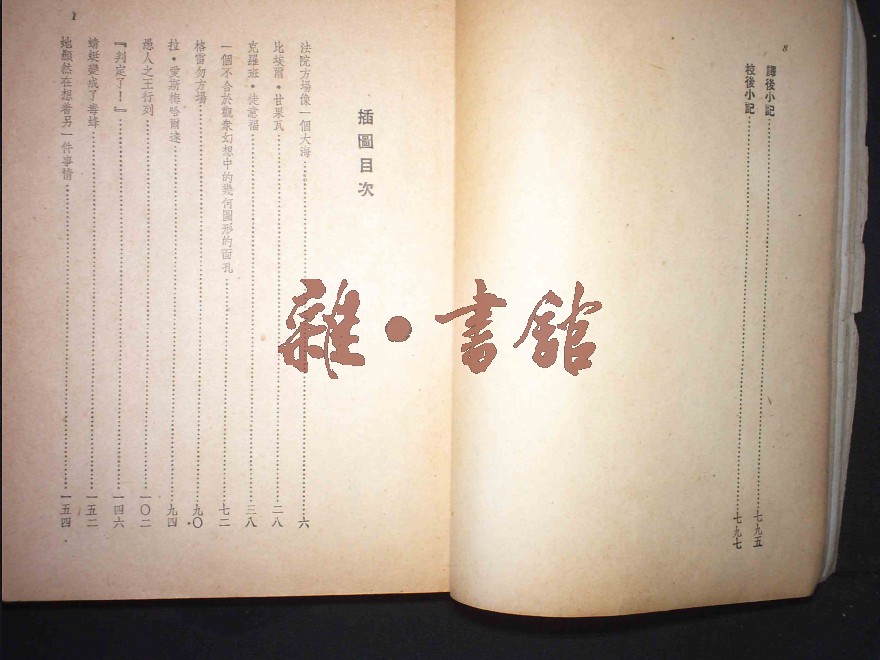 8
譯後小記……七九五
校後小記……七九七
1
插圖目次
法院方場像一個大海……六
比埃爾•甘果瓦……二八
克羅班•徒意福……三八
一個不合於觀衆幻想中的幾何圖形的面孔……七二
格雷勿方場……九〇
拉•愛斯梅哈爾達……九四
愚人之王行列……一〇二
『判定了！』……一四六
蜻蜓變成了毒蜂……一五二
她顯然在想着另一件事情……一五四
雜•書館